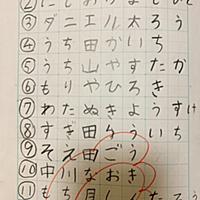 ③ダニエル太ろう
④うち田かいち
⑤うち山やすたか
⑥もりやひろき
⑦わたぬきようすけ
⑧すぎ田りういち
⑨そえ田ごう
⑩中川なおき